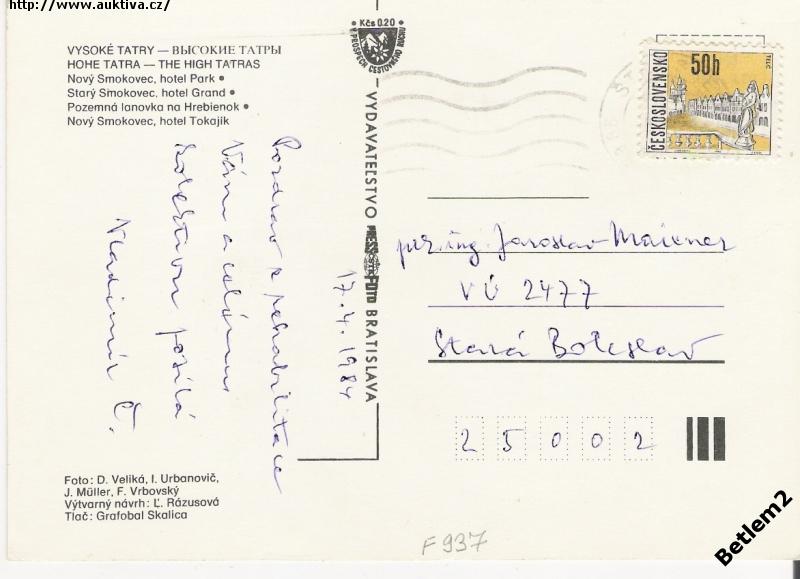 http://www.auktiva.cz/
VYSOKÉ TATRY — ВЫСОКИЕ ТАТРЫ
HOHE TATRA — THE HIGH TATRAS
Nový Smokovec, hotel Park •
Starý Smokovec, hotel Grand •
Pozemná lanovka na Hrebienok •
Nový Smokovec, hotel Tokajík
17. 4. 1984
Pozdrav z rehabilitace
Vám a celému
kolektivu posílá
Vladimír Č.
Foto: D. Veliká, I. Urbanovič,
J. Müller, F. Vrbovský
Výtvarný návrh: Ľ. Rázusová
Tlač: Grafobal Skalica
• Kčs 0.20 •
V PROSPECH CESTOVNÉHO RUCHU
VYDAVATEĽSTVO PRESSFOTO BRATISLAVA
ČESKOSLOVENSKO
50h
TELČ
ing. Jaroslav Maixner
VÚ 2477
Stará Boleslav
25002
F 937
Betlem2